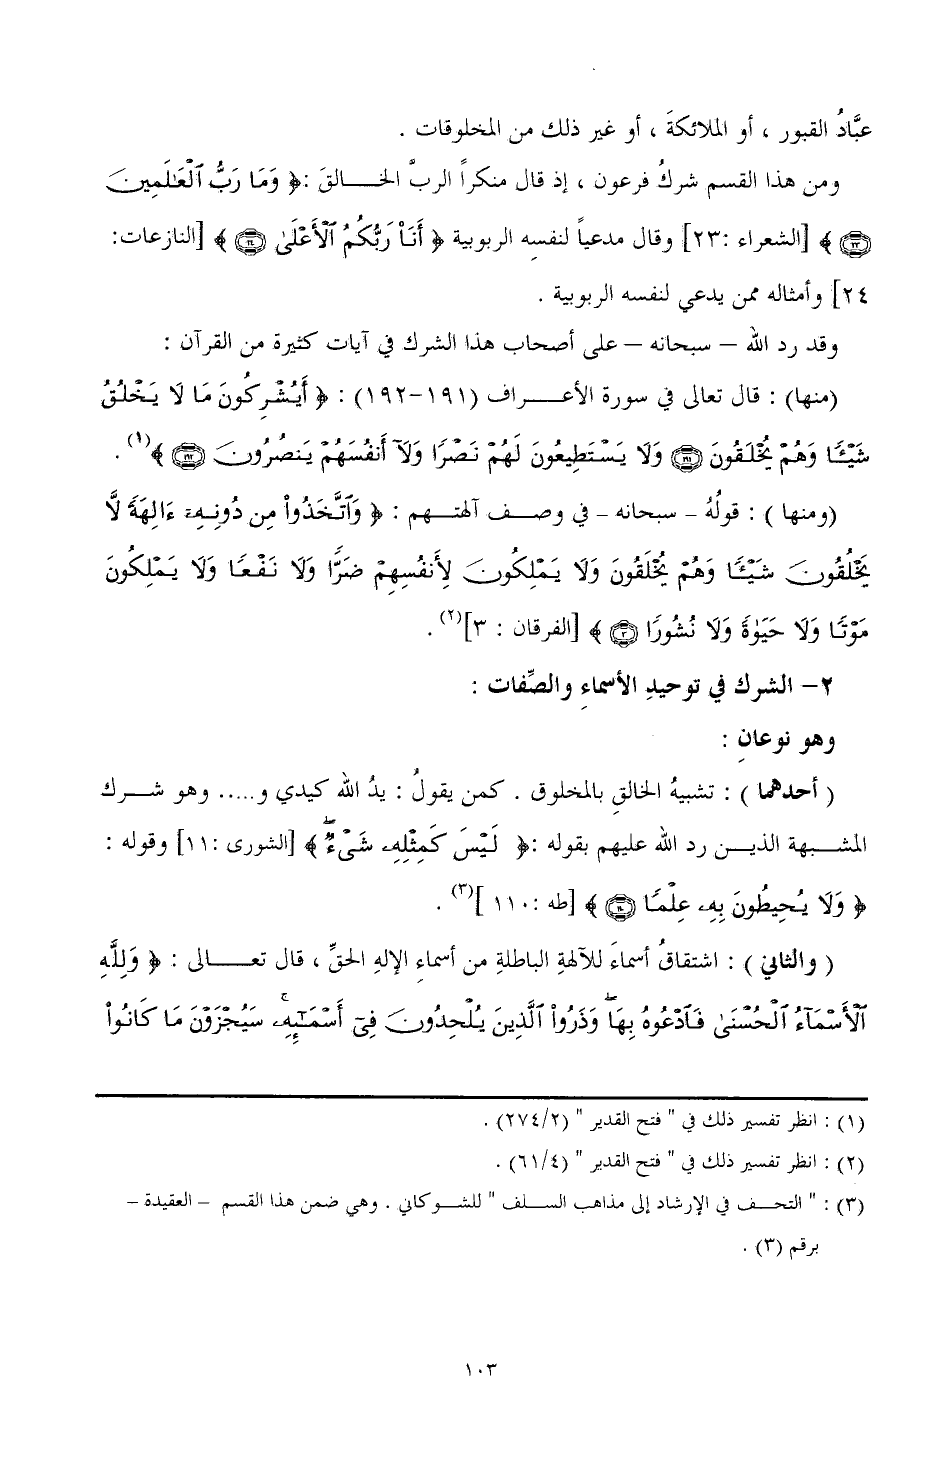 عبَّادُ القبور ، أو الملائكةَ ، أو غير ذلك من المخلوقات .
ومن هذا القسم شركُ فرعون ، إذ قال منكراً الربَّ الخـــالقَ :﴿ وَمَا رَبُّ ٱلْعَٰلَمِينَ
﴿٢٣﴾ ﴾ [الشعراء :٢٣] وقال مدعياً لنفسِه الربوبية ﴿ أَنَا۠ رَبُّكُمُ ٱلْأَعْلَىٰ ﴿٢٤﴾ ﴾ [النازعات:
٢٤] وأمثاله ممن يدعي لنفسه الربوبية .
وقد رد الله – سبحانه – على أصحاب هذا الشرك في آيات كثيرة من القرآن :
(منها) : قال تعالى في سورة الأعـــراف (١٩١-١٩٢) : ﴿ أَيُشْرِكُونَ مَا لَا يَخْلُقُ
شَيْـًٔا وَهُمْ يُخْلَقُونَ ﴿١٩١﴾ وَلَا يَسْتَطِيعُونَ لَهُمْ نَصْرًا وَلَآ أَنفُسَهُمْ يَنصُرُونَ ﴿١٩٢﴾ ﴾(١) .
(ومنها ) : قولُهُ – سبحانه – في وصـف آلهتـــهم : ﴿ وَٱتَّخَذُوا۟ مِن دُونِهِۦٓ ءَالِهَةً لَّا
يَخْلُقُونَ شَيْـًٔا وَهُمْ يُخْلَقُونَ وَلَا يَمْلِكُونَ لِأَنفُسِهِمْ ضَرًّا وَلَا نَفْعًا وَلَا يَمْلِكُونَ
مَوْتًا وَلَا حَيَوٰةً وَلَا نُشُورًا ﴿٣﴾ ﴾ [الفرقان : ٣](٢) .
٢- الشرك في توحيدِ الأسماءِ والصِّفات :
وهو نوعانِ :
( أحدهما ) : تشبيهُ الخالقِ بالمخلوق . كمن يقولُ : يدُ الله كيدي و..... وهو شـــرك
المشـبهة الذيـــن رد الله عليهم بقوله :﴿ لَيْسَ كَمِثْلِهِۦ شَىْءٌۖ ﴾ [الشورى :١١] وقوله :
﴿ وَلَا يُحِيطُونَ بِهِۦ عِلْمًا ﴿١١٠﴾ ﴾ [طه :١١٠ ](٣) .
( والثاني ) : اشتقاقُ أسماءَ للآلهةِ الباطلةِ من أسماءِ الإلهِ الحقِّ ، قال تعـــالى : ﴿ وَلِلَّهِ
ٱلْأَسْمَآءُ ٱلْحُسْنَىٰ فَٱدْعُوهُ بِهَاۖ وَذَرُوا۟ ٱلَّذِينَ يُلْحِدُونَ فِىٓ أَسْمَٰٓئِهِۦۚ سَيُجْزَوْنَ مَا كَانُوا۟
(١) : انظر تفسير ذلك في " فتح القدير " (٢/٢٧٤) .
(٢) : انظر تفسير ذلك في " فتح القدير " (٤/٦١) .
(٣) : " التحـــف في الإرشاد إلى مذاهب الســـلف " للشـــوكاني . وهي ضمن هذا القسم – العقيدة –
برقم (٣) .
١٠٣